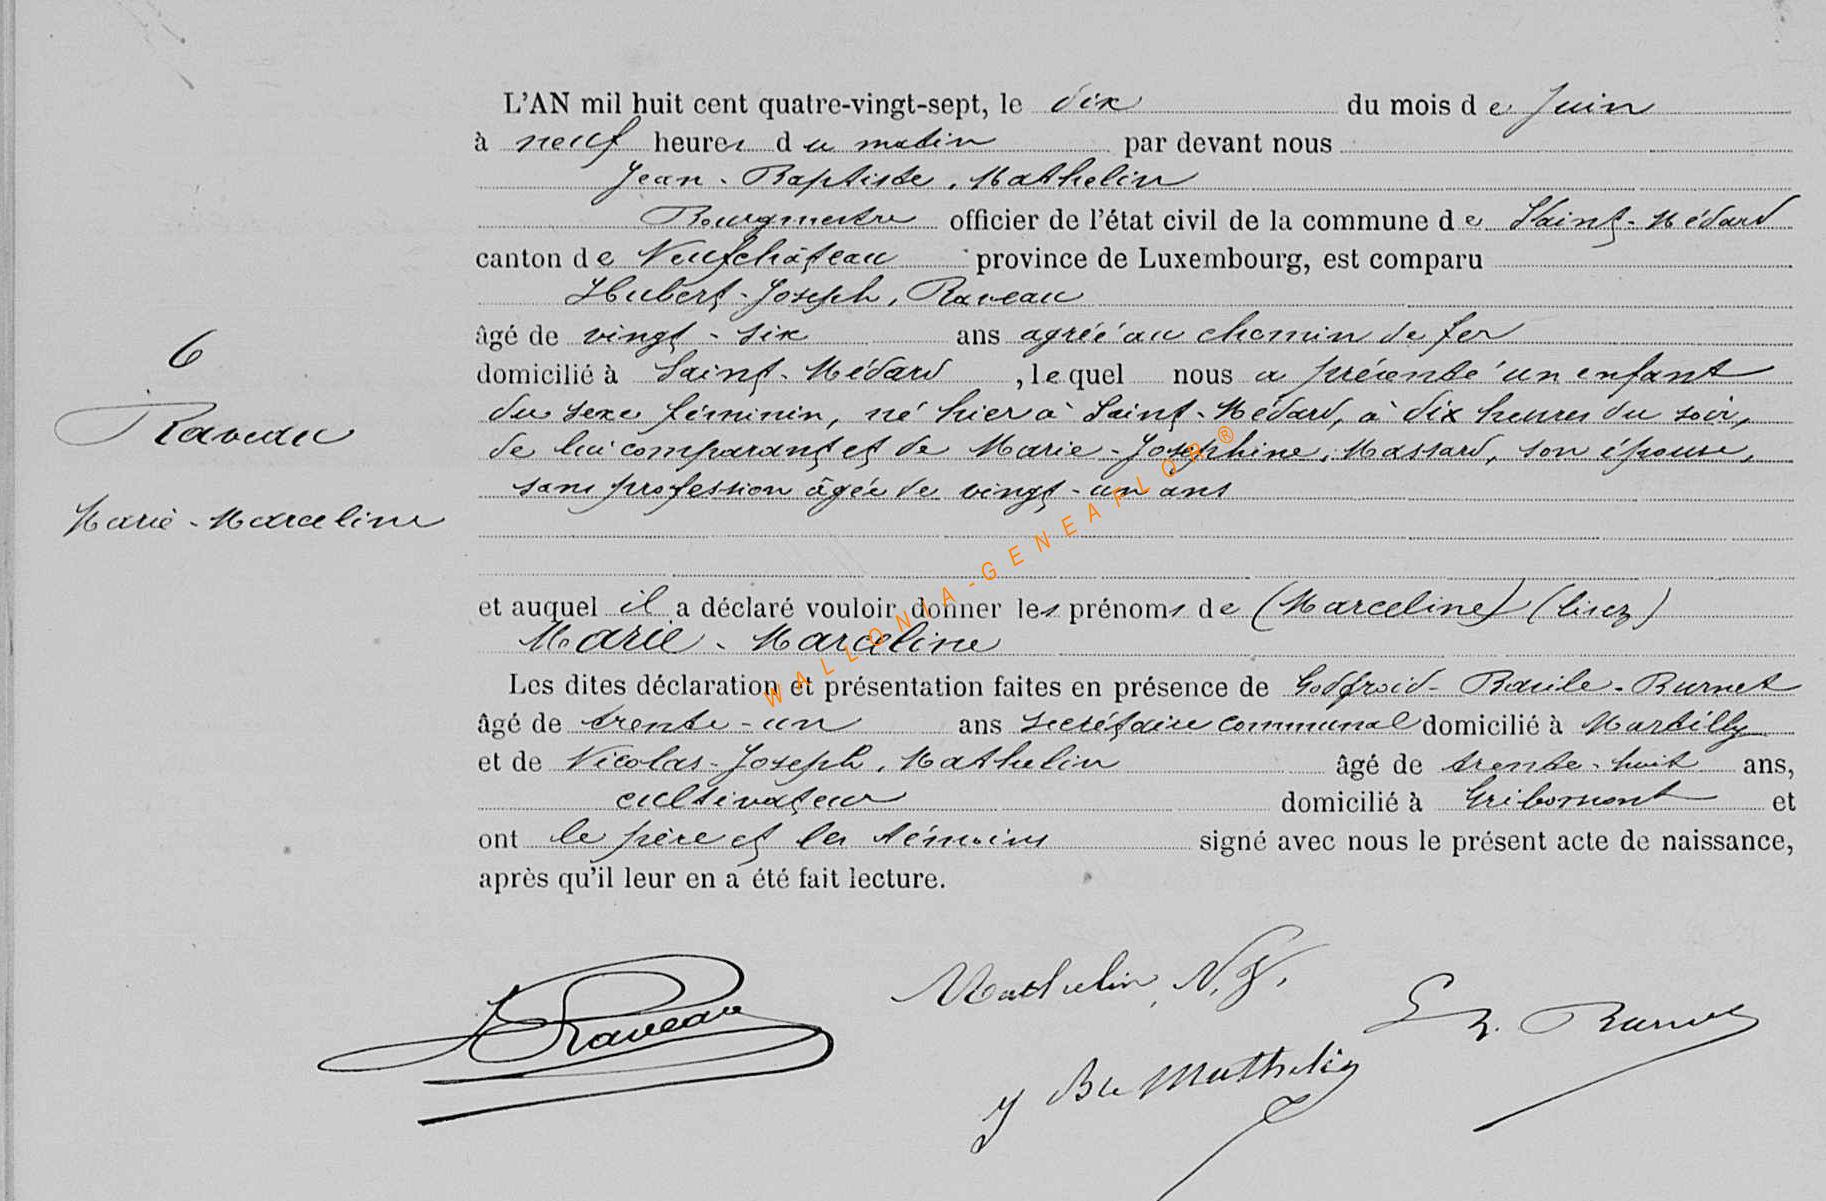 L'AN mil huit cent quatre-vingt-sept, le dix du mois de Juin
à neuf heures du matin par devant nous
Jean-Baptiste, Mathelin
Bourgmestre officier de l'état civil de la commune de Saint-Médard
canton de Neufchâteau province de Luxembourg, est comparu
Hubert-Joseph, Raveau
âgé de vingt-six ans agréé au chemin de fer
6
domicilié à Saint-Médard, lequel nous a présenté un enfant
du sexe féminin, né hier à Saint-Médard, à dix heures du soir,
Raveau
de lui comparant et de Marie-Josephine, Massard, son épouse,
sans profession âgée de vingt-un ans
Marie-Marceline
et auquel il a déclaré vouloir donner les prénoms de (Marceline) (lisez)
Marie-Marceline
Les dites déclaration et présentation faites en présence de Godfroid-Basile-Burnet
âgé de trente-un ans secrétaire communal domicilié à Martilly
et de Nicolas-Joseph, Mathelin âgé de trente-huit ans,
cultivateur domicilié à Gribomont et
ont le père et les témoins signé avec nous le présent acte de naissance,
après qu'il leur en a été fait lecture.
Raveau
Mathelin, N. J.
Burnet
J Bte Mathelin
WALLONIA-GENEAFLOR ®